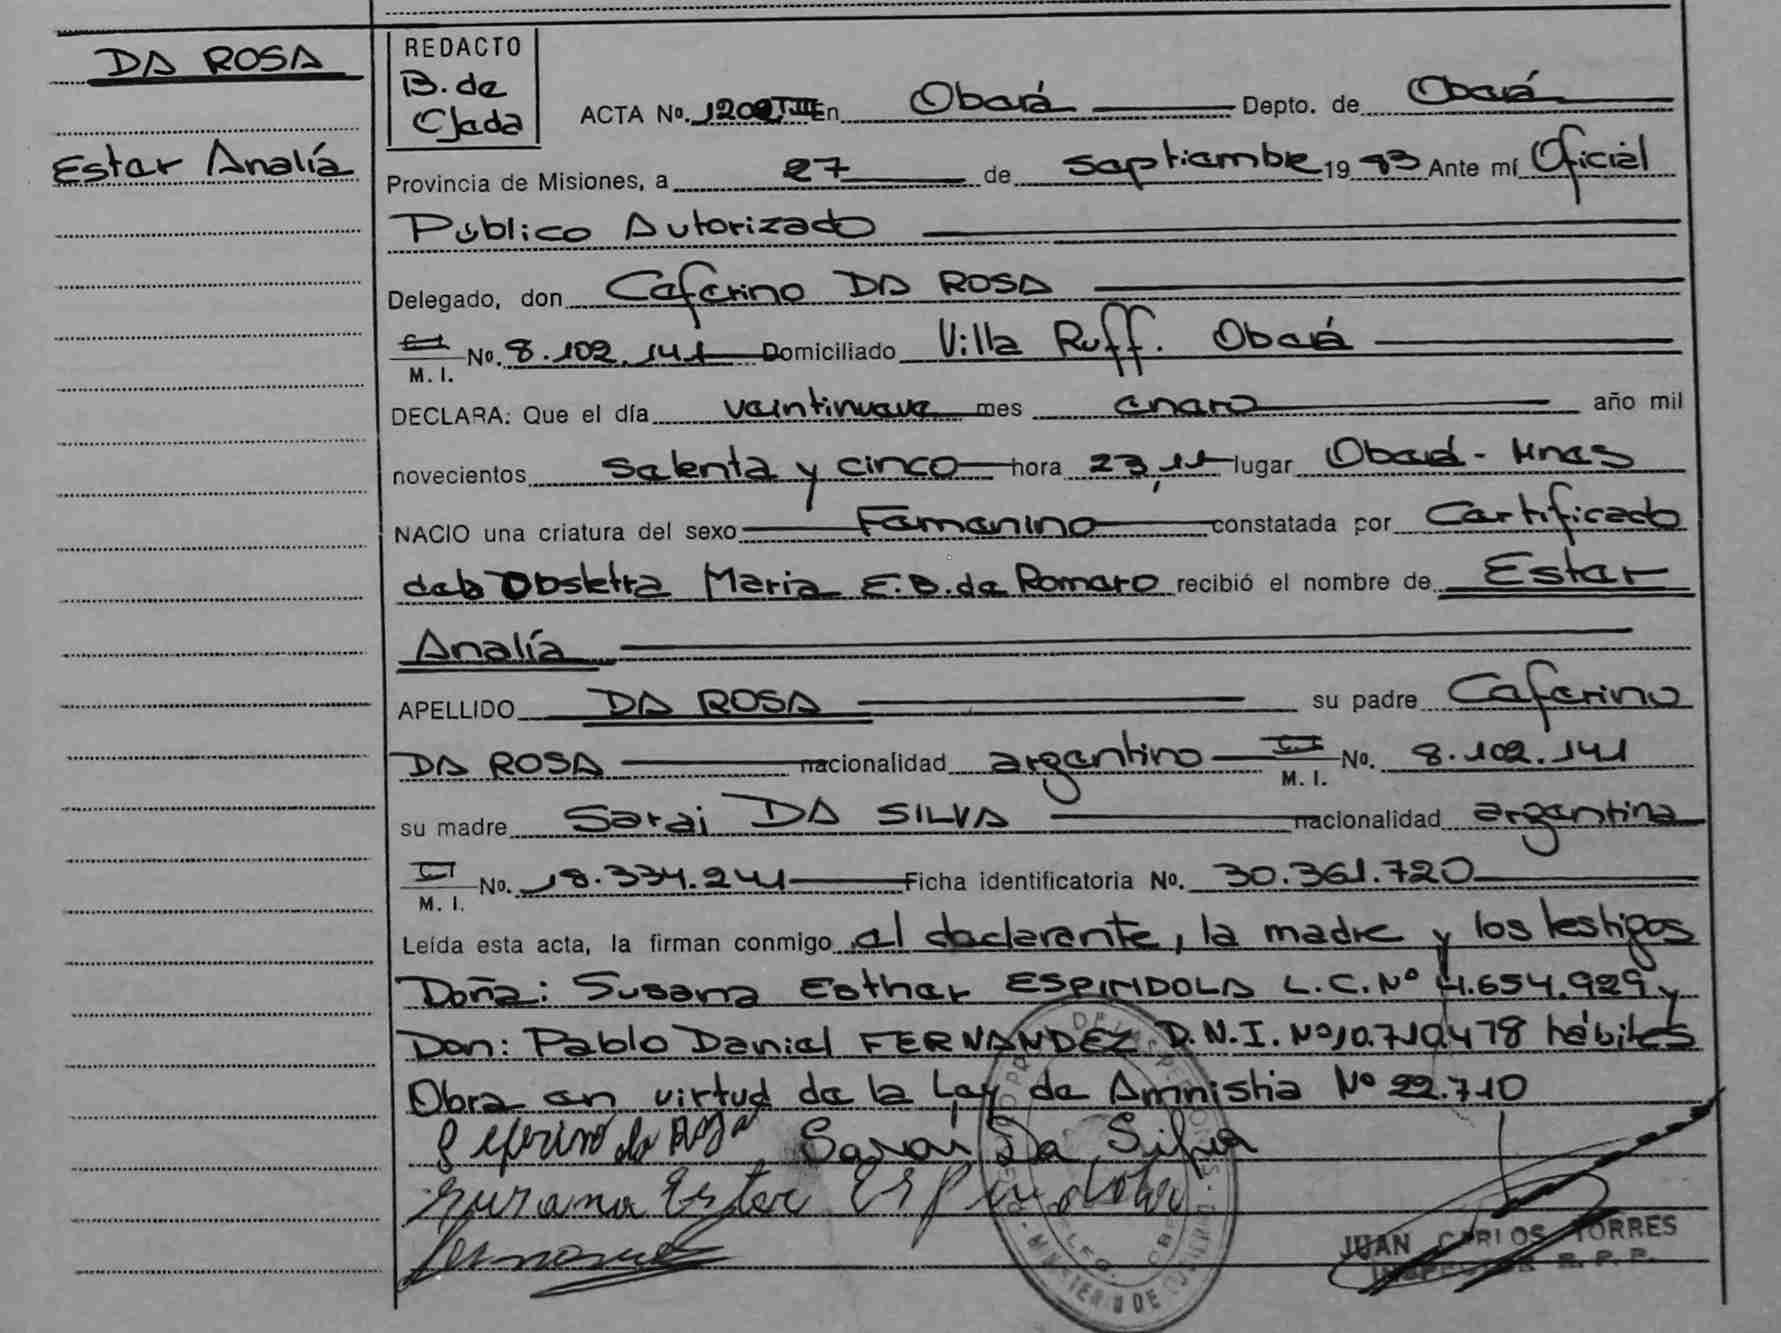 DA ROSA
Ester Analía
REDACTO
B. de
Cjada
ACTA Nº. 1202 T III En Oberá Depto. de Oberá
Provincia de Misiones, a 27 de septiembre 19 83 Ante mí Oficial
Público Autorizado
Delegado, don Ceferino DA ROSA
M. I. Nº. 8.102.141 Domiciliado Villa Ruff. Oberá
DECLARA: Que el día veintinueve mes enero año mil
novecientos setenta y cinco hora 23,11 lugar Oberá - Mnes
NACIO una criatura del sexo Femenino constatada por Certificado
de la Obstetra Maria E.B. de Romero recibió el nombre de Ester
Analía
APELLIDO DA ROSA su padre Ceferino
DA ROSA nacionalidad argentino M. I. Nº. 8.102.141
su madre Sarai DA SILVA nacionalidad argentina
M. I. Nº. 18.334.241 Ficha identificatoria Nº. 30.361.720
Leída esta acta, la firman conmigo el declarante, la madre y los testigos
Doña: Susana Esther ESPINDOLA L.C. Nº 4.654.929 y
Don: Pablo Daniel FERNANDEZ D.N.I. Nº 10.710.478 hábiles
Obra en virtud de la Ley de Amnistia Nº 22.710
Seferino da Rosa Sarai Da Silva
Susana Ester Espindola
JUAN CARLOS TORRES
INSPECTOR R. P. P.